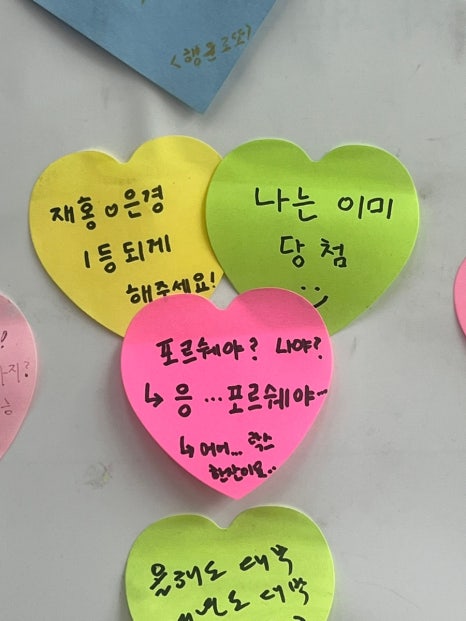 <행운로또>
재홍♡은경
1등되게
해주세요!
나는 이미
당첨
:)
포르쉐야? 나야?
↳ 응 …포르쉐야~
↳ 어어…
한잔이요..
올해도 대박
대박